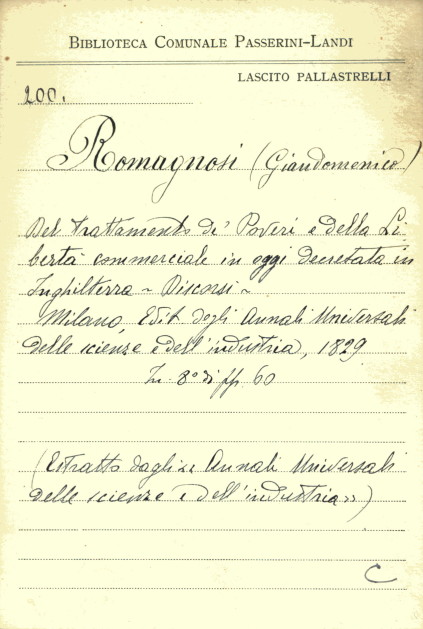 BIBLIOTECA COMUNALE PASSERINI-LANDI
LASCITO PALLASTRELLI
200.
Romagnosi (Giandomenico)
Del trattamento de' Poveri e della Li-
bertà commerciale in oggi decretata in
Inghilterra ~ Discorsi ~
Milano, Edit. degli Annali Universali
delle scienze e dell'industria, 1829
In 8° di pp. 60
(Estratto dagli << Annali Universali
delle scienze e dell'industria >>)
C